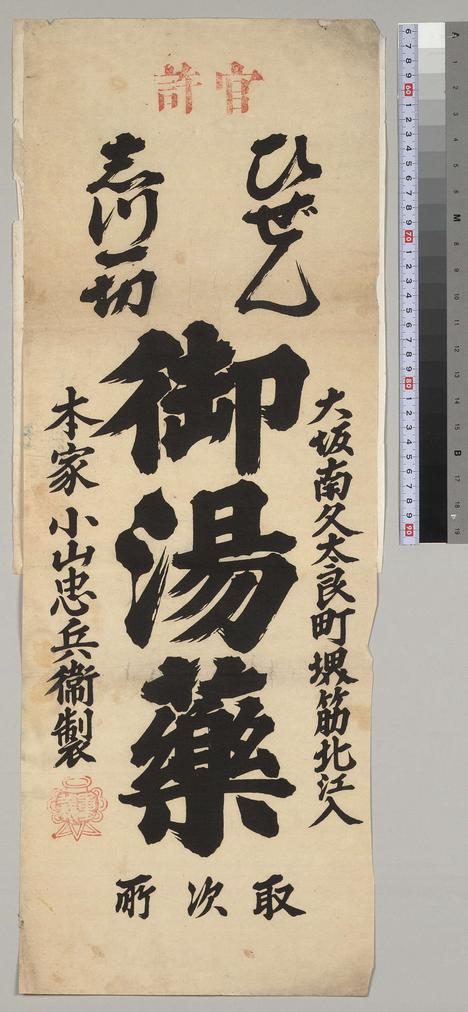 官許
ひぜん
志つ一切
大坂南久太良町堺筋北江入
御湯藥
本家 小山忠兵衞製
取次所